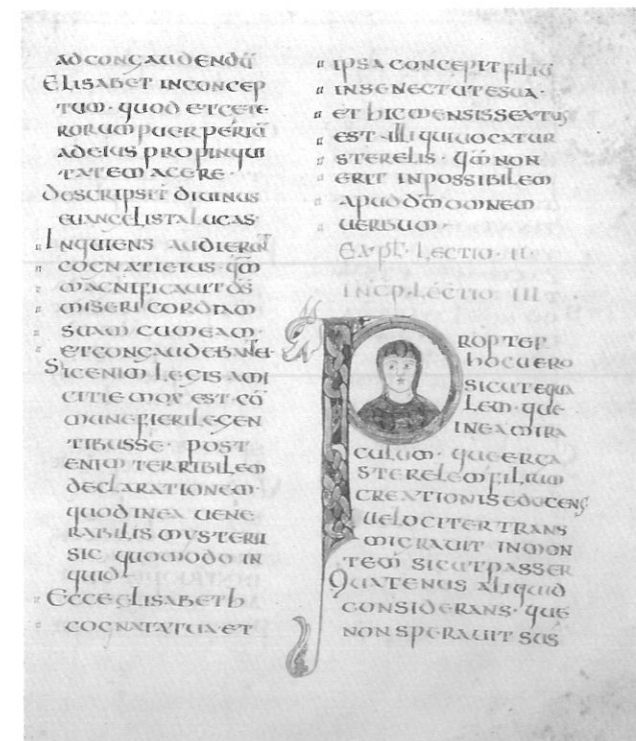 ADCONGAUDENDŪ
ELISABET INCONCEP
TUM· QUOD ETCETE
RORUM PUERPERIŪ
ADEIUS PROPINQUI
TATEM AGERE·
DESCRIPSIT DIUINUS
EUANGELISTA LUCAS·
INQUIENS AUDIERUNT
COGNATIEIUS· QM̄
MAGNIFICAUIT DS̄
MISERICORDIAM
SUAM CUMEAM·
ETCONGAUDEBANTEI·
SICENIM LEGIS AMI
CITIE MOX EST CŌ
MUNE FIERI LEGEN
TIBUSSE· POST
ENIM TERRIBILEM
DECLARATIONEM·
QUODINEA UENE
RABILIS MYSTERII
SIC QUOMODO IN
QUID·
ECCE ELISABETH
COGNATATUA ET
IPSA CONCEPIT FILIŪ
INSENECTUTESUA·
ET HIC MENSIS SEXTUS
EST ILLI QUI UOCATUR
STERELIS· QM̄ NON
ERIT INPOSSIBILEM
APUD DM̄ OMNEM
UERBUM·
EXPL· LECTIO· II·
INCP· LECTIO III·
PROPTER
HOC UERO
SICUT EQUA
LEM· QUE
INEA MIRA
CULUM· QUE ERGA
STERELEM FILIUM
CREATIONIS EDOCENS
UELOCITER TRANS
MIGRAUIT INMON
TEM SICUT PASSER
QUATENUS ALIQUID
CONSIDERANS· QUE
NON SPERAUIT SUS